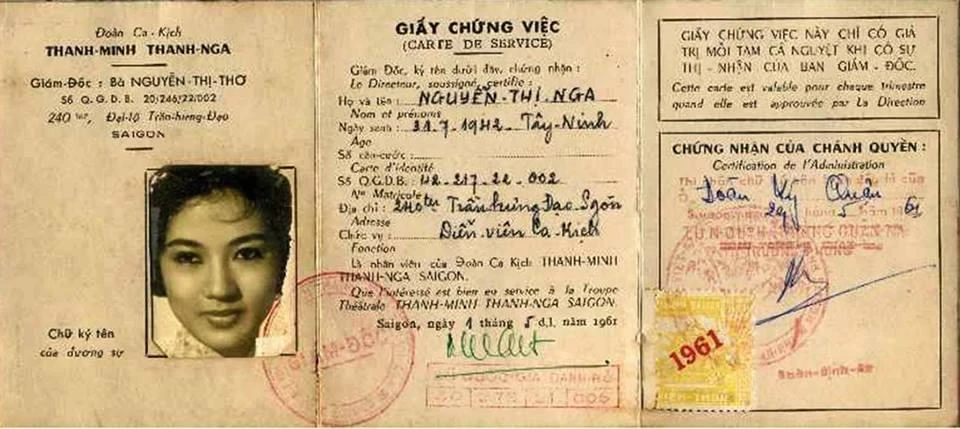 Đoàn Ca-Kịch
THANH-MINH THANH-NGA
Giám-Đốc : Bà NGUYỄN-THỊ-THƠ
Số Q.G.D.B. 20/246/22/002
240 ter, Đại-lộ Trần-hưng-Đạo
SAIGON
Chữ ký tên
của đương sự
GIẤY CHỨNG VIỆC
(CARTE DE SERVICE)
Giám Đốc, ký tên dưới đây, chứng nhận :
Le Directeur, soussigné, certifie :
Họ và tên : NGUYỄN-THỊ-NGA
Nom et prénoms
Ngày sanh : 31.7.1942 Tây-Ninh
Age
Số căn-cước :
Carte d'identité
Số Q.G.D.B. : 42-217-22-002
No Matricule
Địa chỉ : 240ter Trần Hưng Đạo Sgòn
Adresse
Chức vụ : Diễn viên Ca Kịch
Fonction
Là nhân viên của Đoàn Ca Kịch THANH-MINH
THANH-NGA SAIGON.
Que l'intéressé est bien en service à la Troupe
Théâtrale THANH-MINH THANH-NGA SAIGON.
Saigon, ngày 1 tháng 5 d.l. năm 1961
GIẤY CHỨNG VIỆC NÀY CHỈ CÓ GIÁ
TRỊ MỖI TAM CÁ NGUYỆT KHI CÓ SỰ
THỊ-NHẬN CỦA BAN GIÁM-ĐỐC.
Cette carte est valable pour chaque trimestre
quand elle est approuvée par La Direction
CHỨNG NHẬN CỦA CHÁNH QUYỀN :
Certification de l'Administration
Đoàn Kỳ Quân
29 5 61
1961